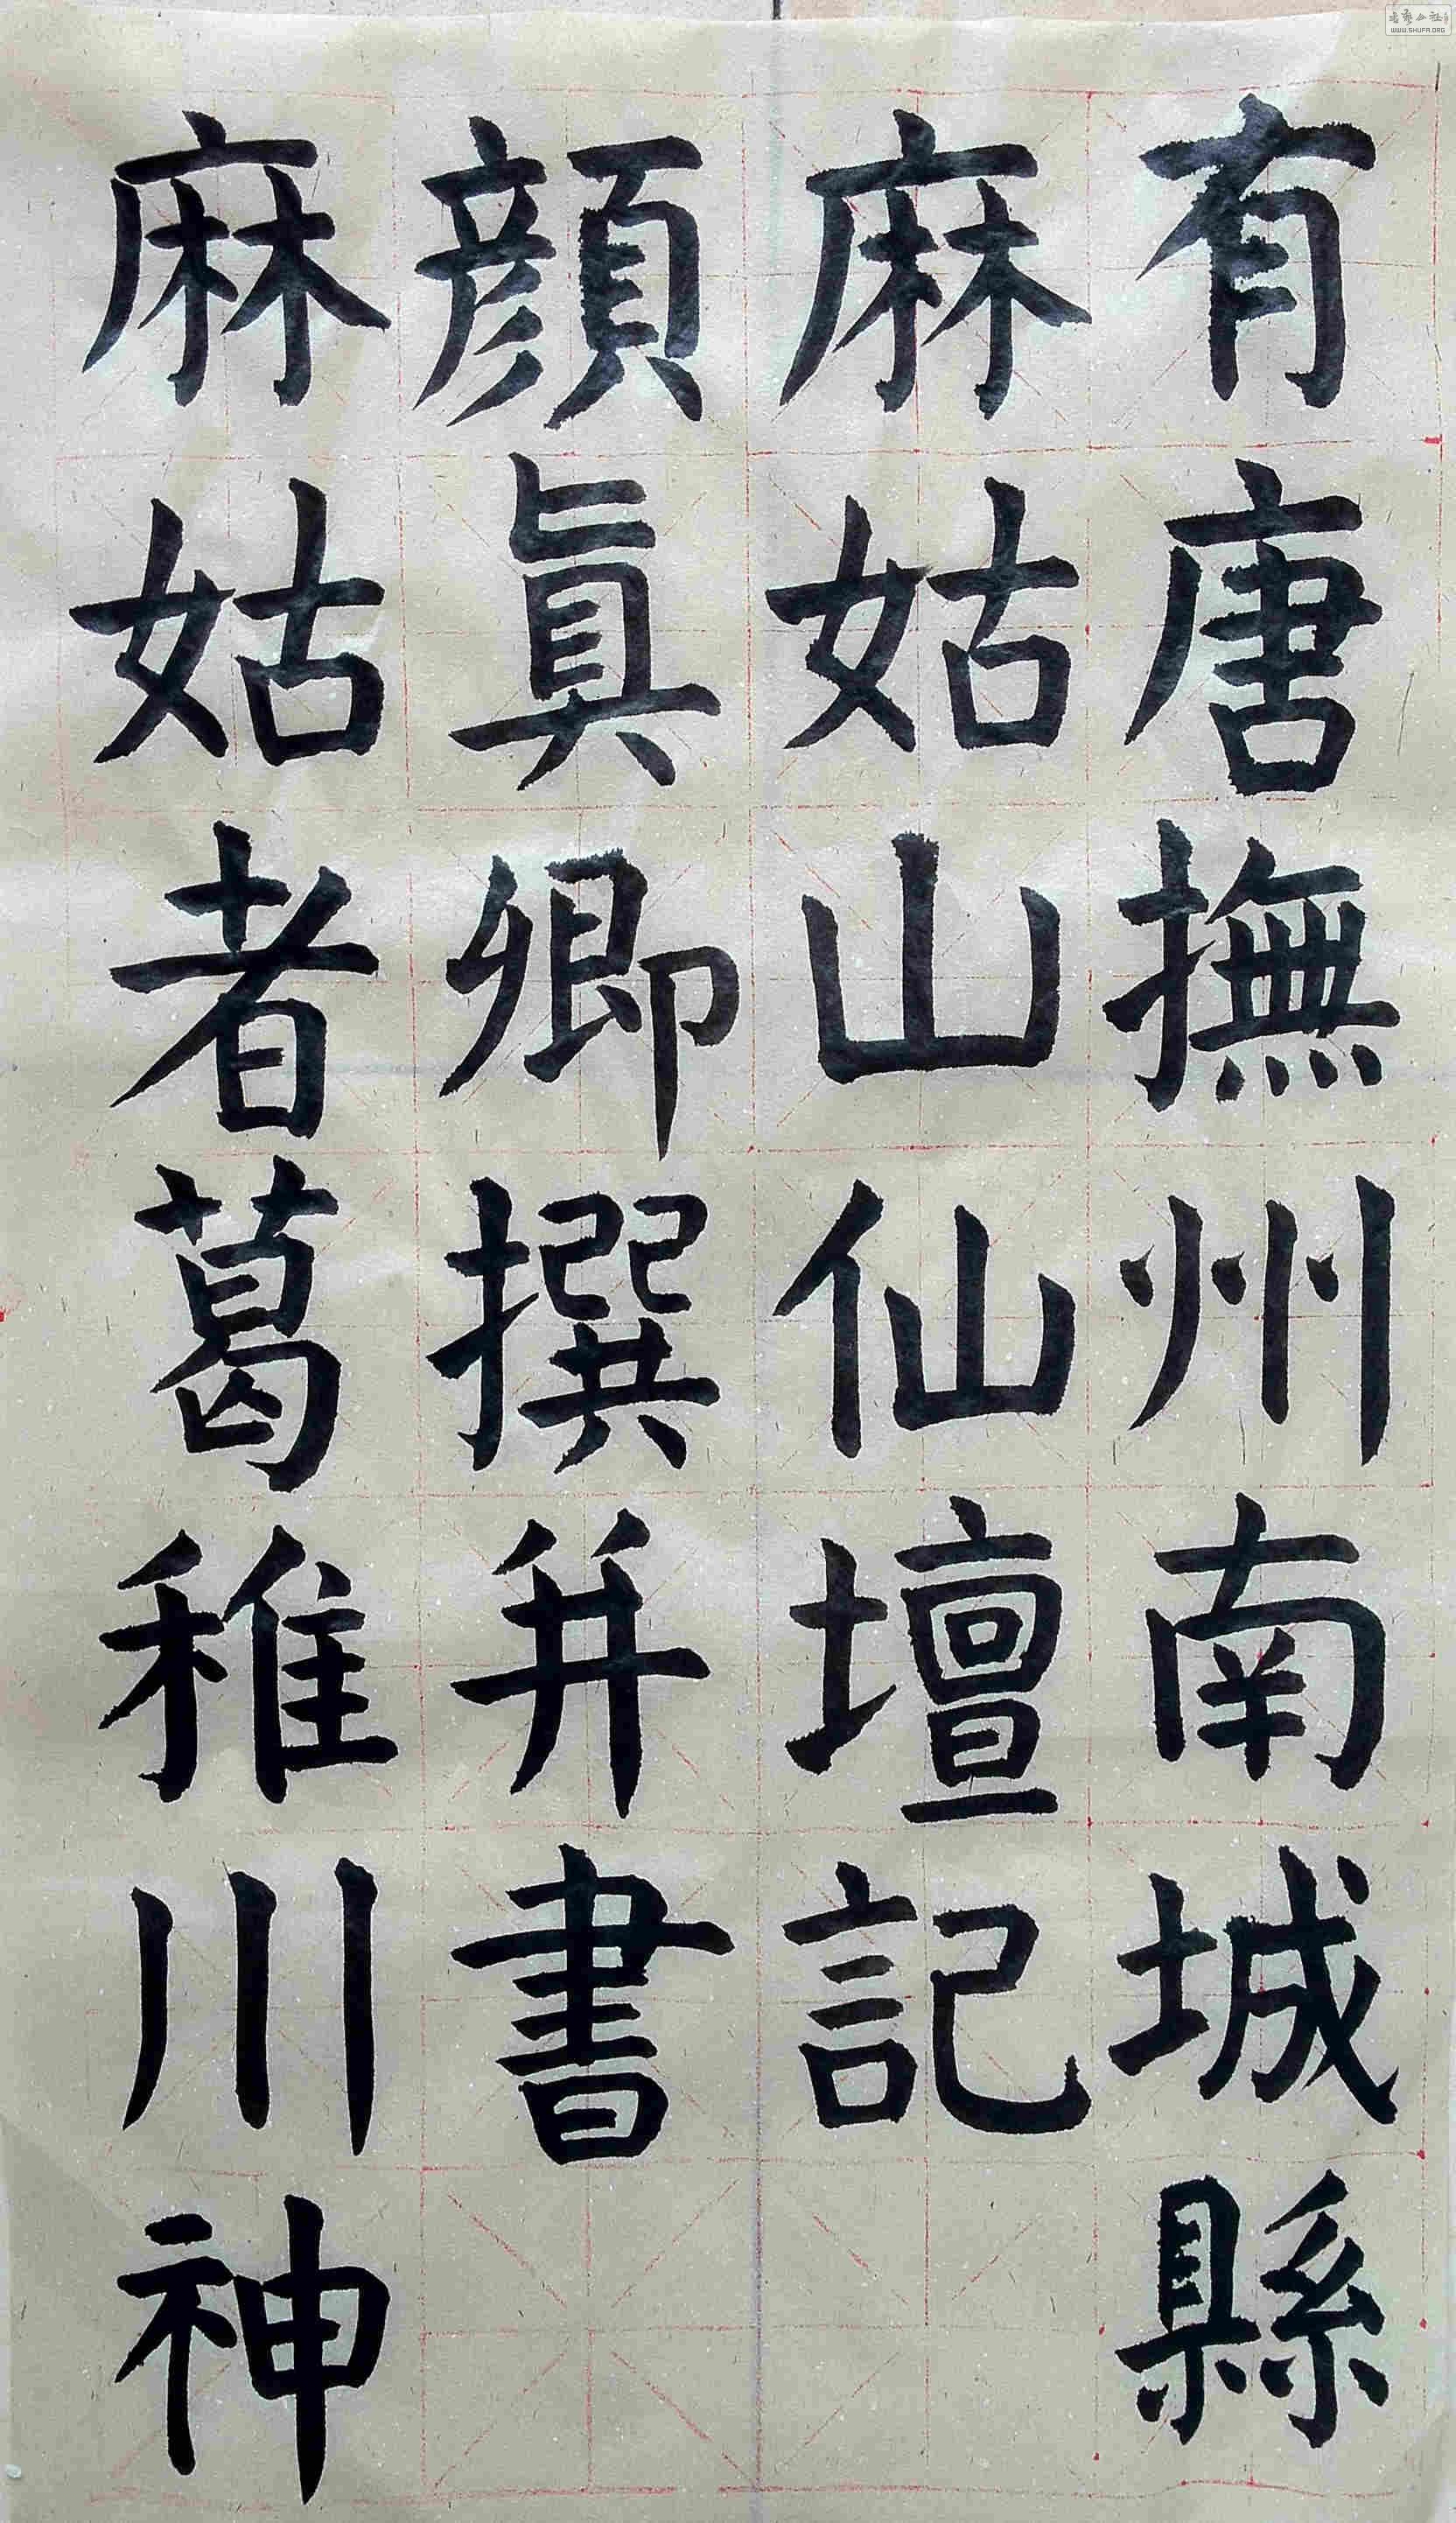 有唐撫州南城縣
麻姑山仙壇記
顏眞卿撰并書
麻姑者葛稚川神
WWW.SHUFA.ORG